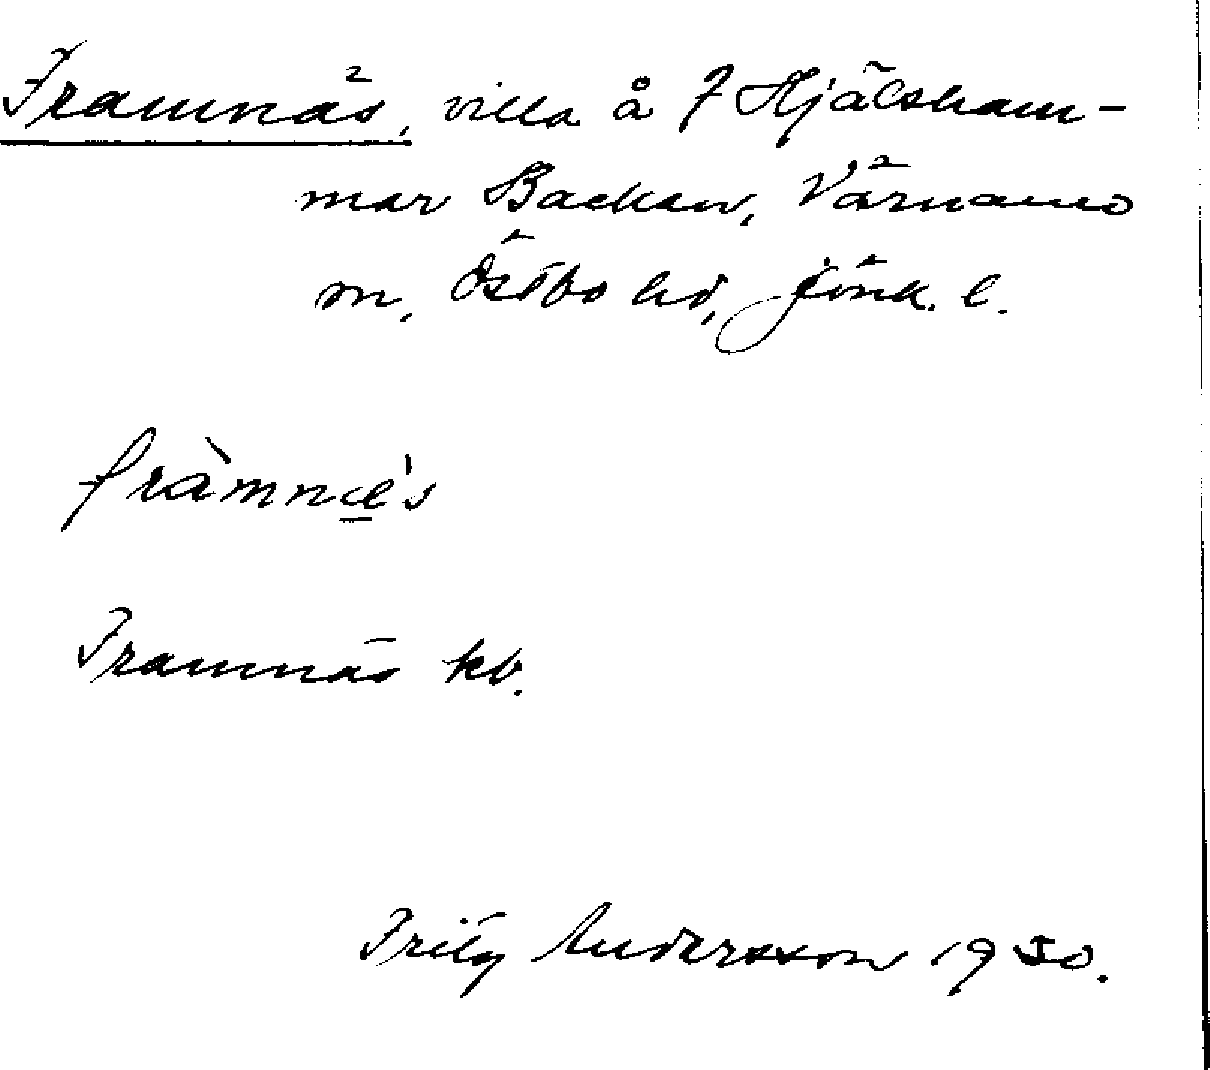 Framnäs, villa å 7 Hjälsham-
mar Backen, Värnamo
sn, Östbo hd, Jönk. l.
fràmnæ̲̀s
Framnäs kb.
Fritz Andersson 1930.